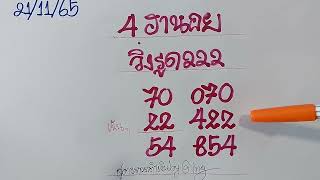 21/11/65
4 ฐานลอย
วิ่งรูด222
70 070
22 422
54 854